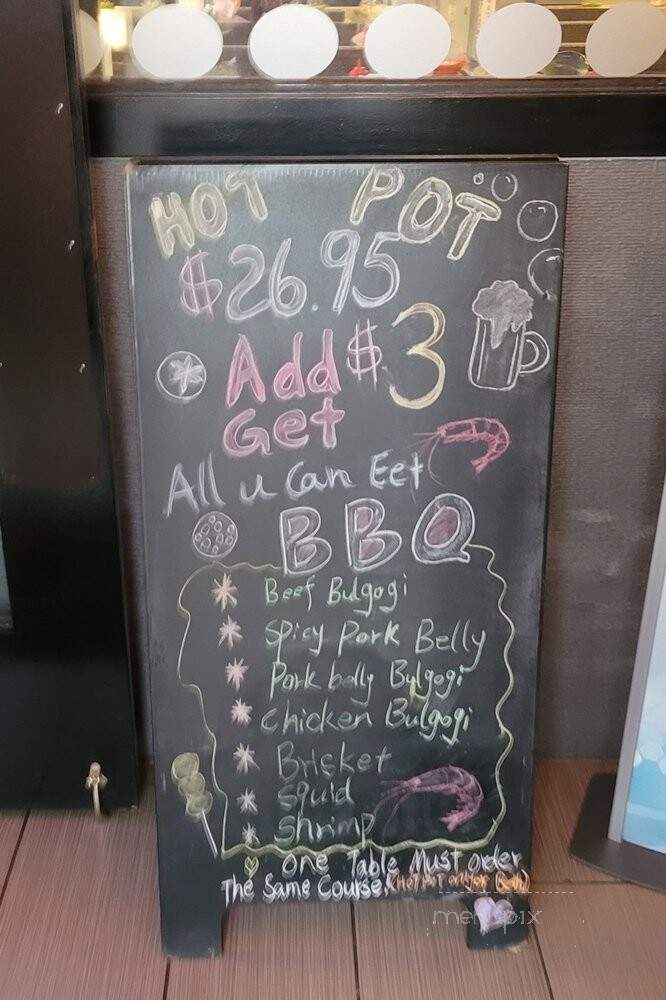 HOT POT
$26.95
Add $3
Get
All u Can Eet
BBQ
* Beef Bulgogi
* Spicy Pork Belly
* Pork belly Bulgogi
* Chicken Bulgogi
* Brisket
* Squid
* Shrimp
One Table Must order
The Same Course. (HOT POT
menupix